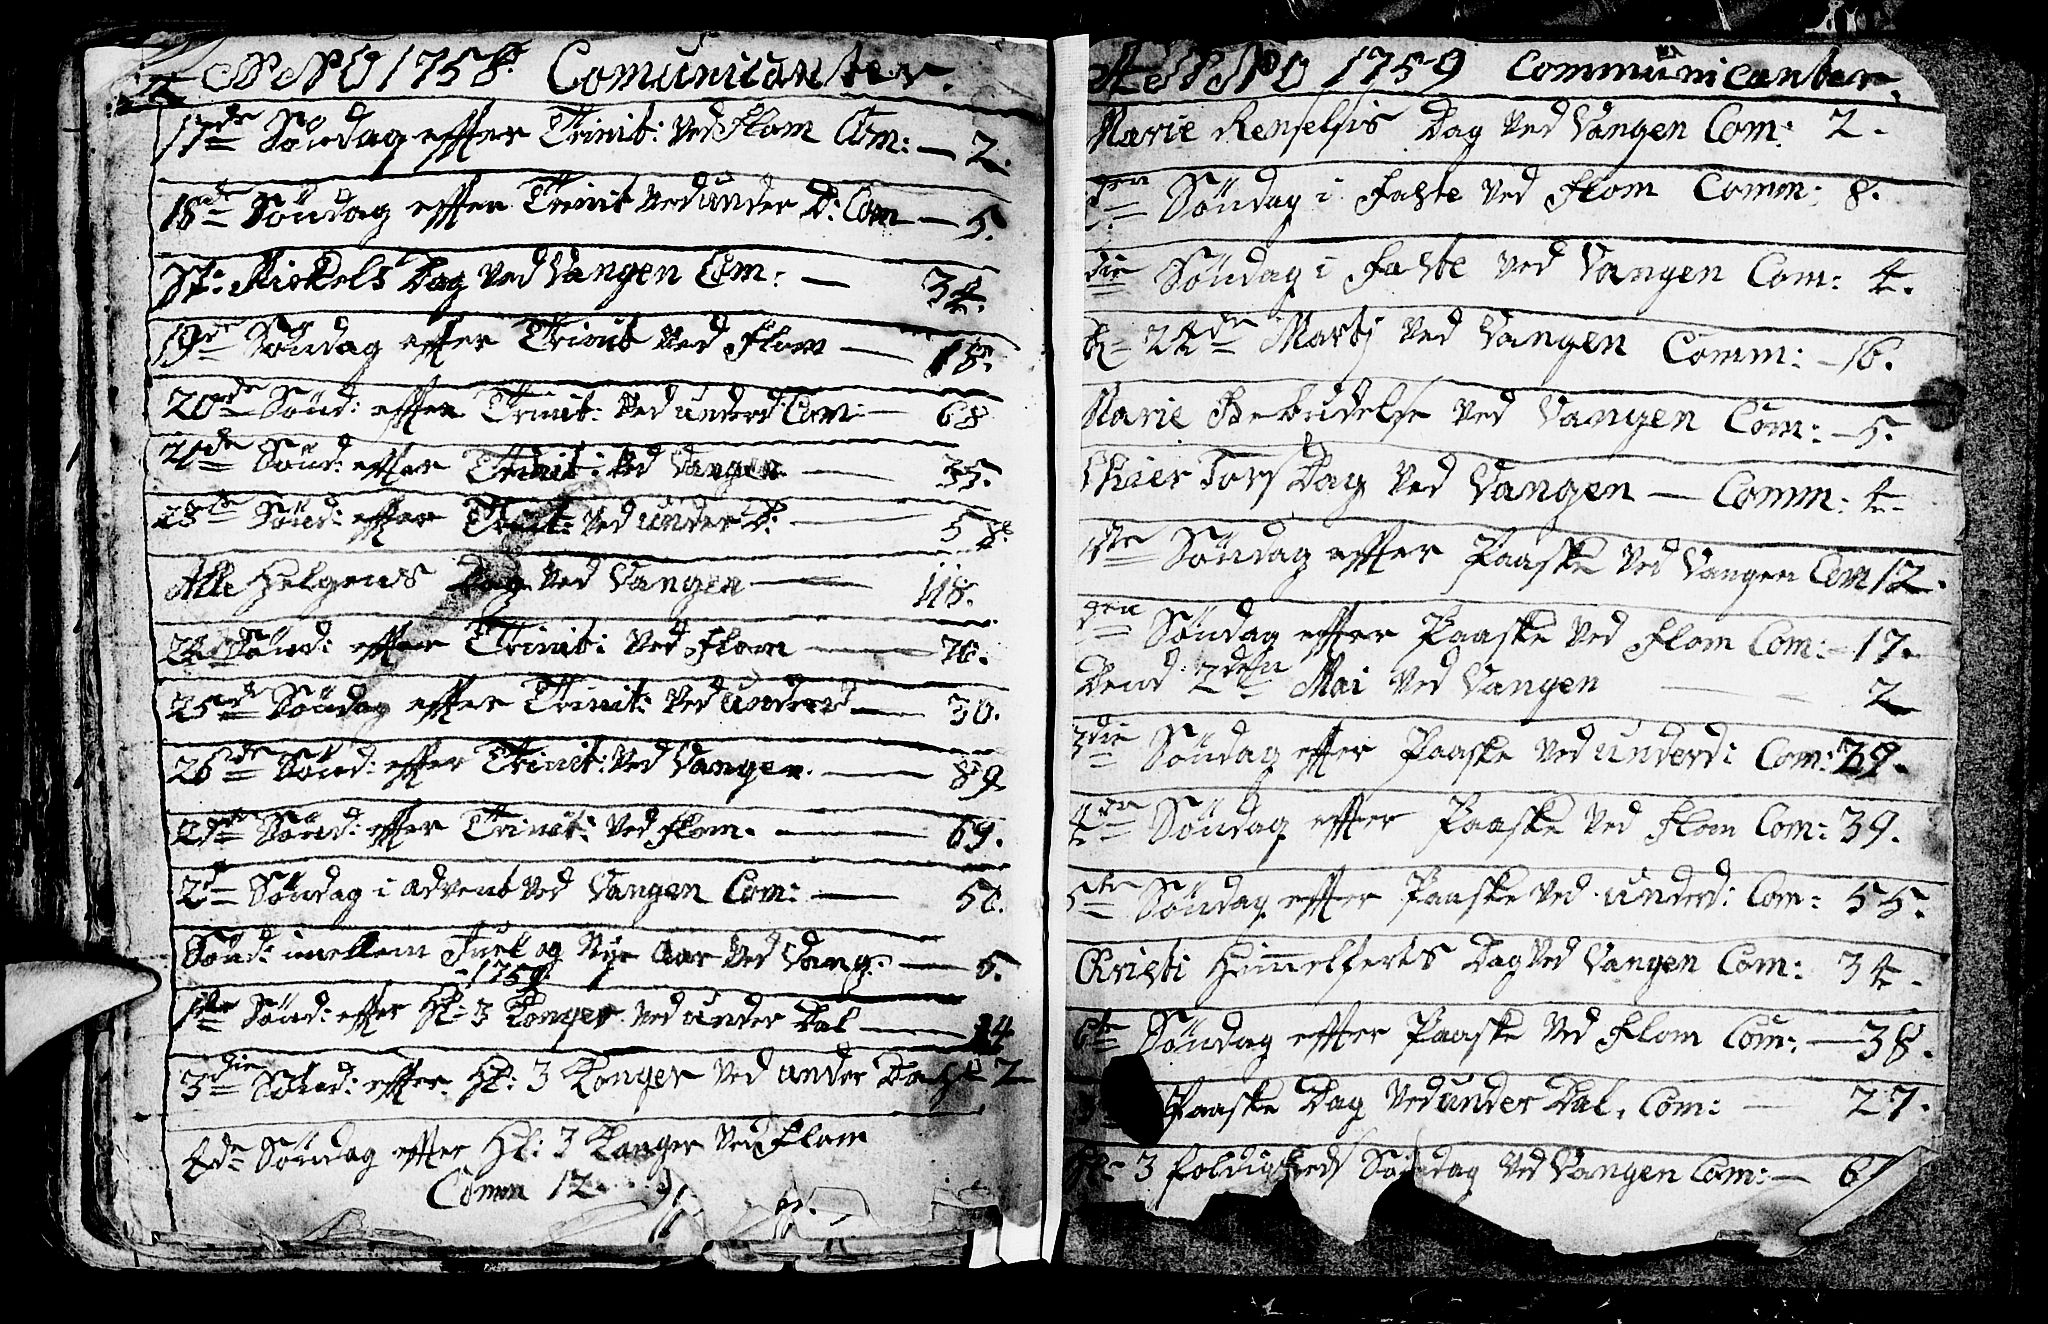 ANNO 1758. Comunicanter.
17de Søndag effter Trinit: ved Flom Com: — 2.
18de Søndag effter Trinit ved under D: Com — 5.
St: Mickels Dag ved Vangen Com: — 34.
19de Søndag effter Trinit ved Flom — 18.
20de Sønd: effter Trinit: ved underd Com — 68
21de Sønd: effter Trinit: ved Vangen — 35.
23de Sønd: effter Trinit: ved under D: — 58.
Alle Helgens Dag ved Vangen — 118.
24de Sønd: effter Trinit: ved Flom — 76.
25de Søndag effter Trinit: ved underd — 30.
26de Sønd: effter Trinit: ved Vangen. — 89
Sønd: effter Trinit: ved Flom. — 69.
2de Søndag i Advent ved Vangen Com: — 56.
Sønd: imellem Juel og Nye Aar ved Vang: — 5.
1759
1ste Sønd: effter Hl: 3 Konger ved under Dal — 14
3die Sønd: effter Hl: 3 Konger ved under Dahl 2
4de Søndag effter Hl: 3 Konger ved Flom
Comm 12.
ANNO 1759 Communicanter.
Marie Renselsis Dag ved Vangen Com: 2.
Søndag i Faste ved Flom Comm: 8.
die Søndag i Faste ved Vangen Com: 4.
d= 24de Martj ved Vangen Comm: — 16.
Marie Bebudelse ved Vangen Com: — 5.
Skier Tors Dag ved Vangen — Comm: 4
1ste Søndag effter Paaske ved Vangen Com 12.
Søndag effter Paaske ved Flom Com: — 17.
Dend 2den Mai ved Vangen — 2
3die Søndag effter Paaske ved underd: Com: 39.
4de Søndag effter Paaske ved Flom Com: 39.
5te Søndag effter Paaske ved underd: Com: 55.
Christi Himmelferts Dag ved Vangen Com: 34.
6te Søndag effter Paaske ved Flom Com: — 38.
Paaske Dag ved under Dal. Com: — 27.
Hl: 3 foldigheds Søndag ved Vangen Com: — 6